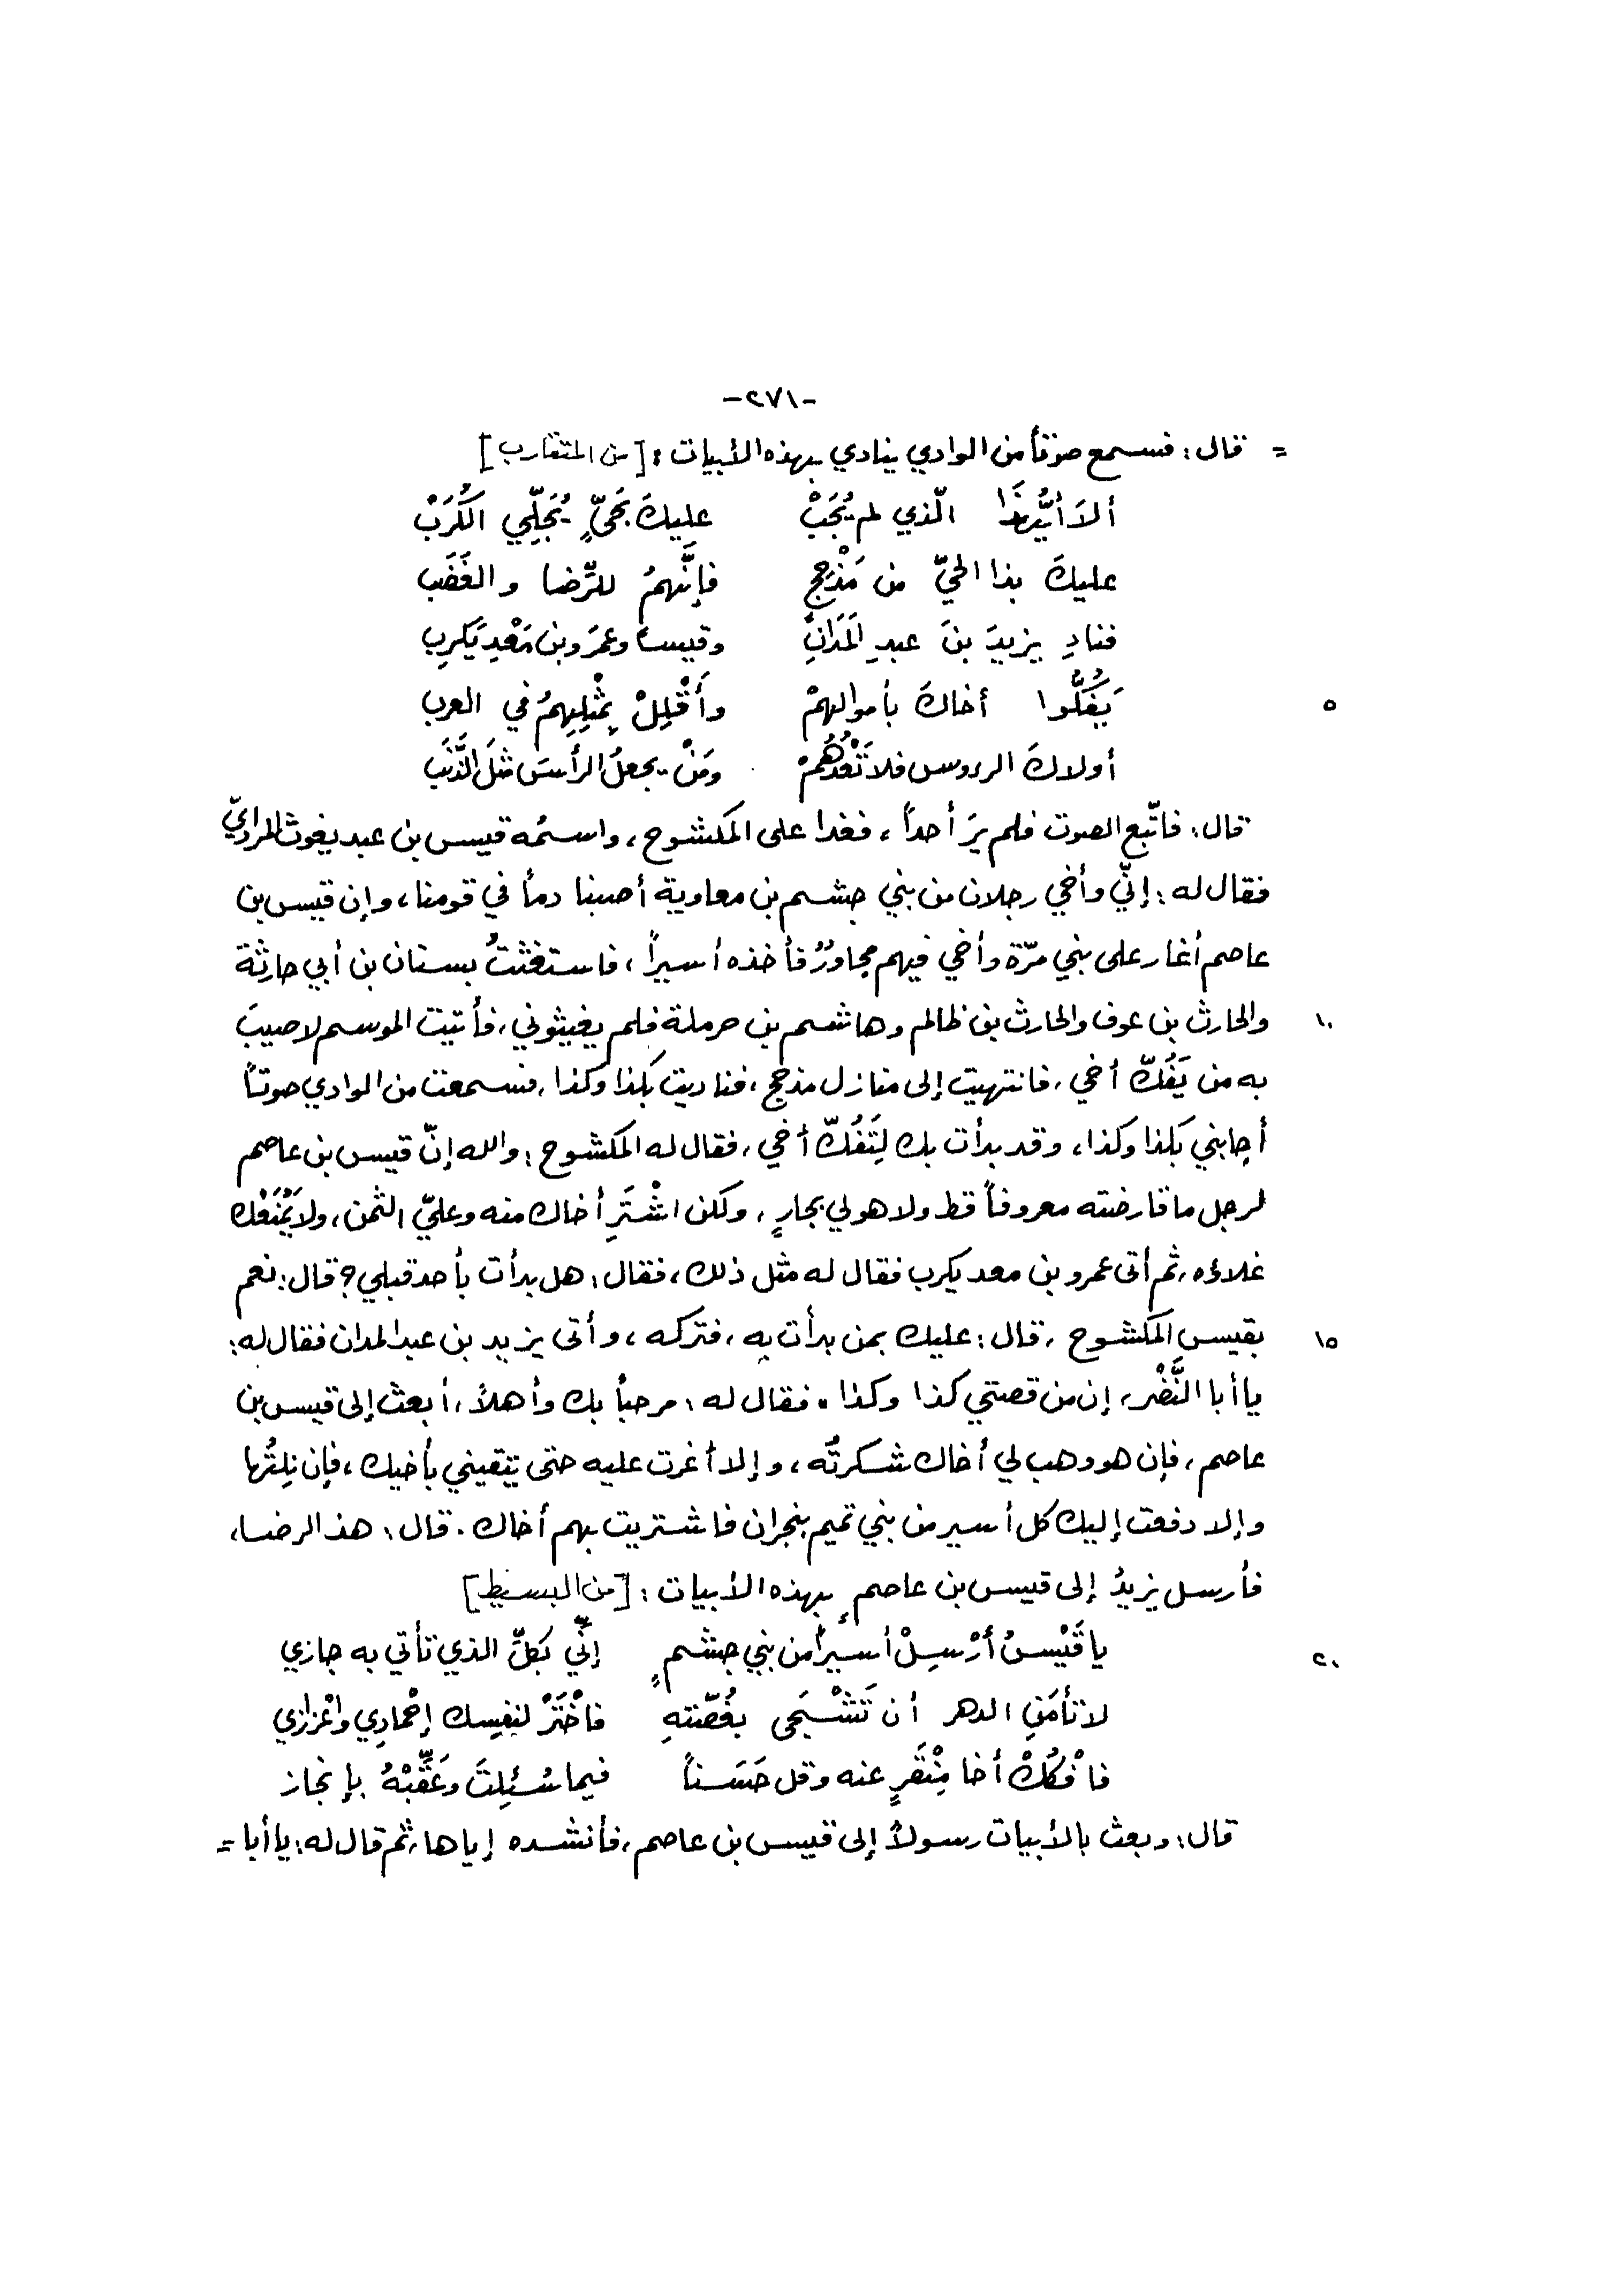 -٢٧١-
= قال: فسمع صوتاً من الوادي ينادي بهذه الأبيات: [من المتقارب]
ألاَ أيُّهَذَا الّذي لم يُجَبْ عليكَ بحَيٍّ يُجَلِّي الكُرَبْ
عليكَ بذا الحيّ من مَذْحِجٍ فإنَّهمُ للرِّضا والغَضَب
فنادِ يزيدَ بنَ عبدِ المَدَانِ وقيساً وعمرَو بن مَعْدِيَكرِب
٥ يَفُكُّوا أخاكَ بأموالهمْ وأَقْلِلْ بِمْثلِهِمُ في العرب
أولاكَ الرءوس فلا تَعْدُهُمْ ومَنْ يجعلُ الرأسَ مثلَ الذَّنَب
قال: فاتّبع الصوت فلم يرَ أحداً، فغدا على المكشوح، واسمُه قيس بن عبد يغوث المراديّ
فقال له: إنّي وأخي رجلان من بني جشم بن معاوية أصبنا دماً في قومنا، وإن قيس بن
عاصم أغار على بني مرّة وأخي فيهم مجاورٌ فأخذه أسيراً، فاستغثتُ بسنان بن أبي حارثة
١٠ والحارث بن عوف والحارث بن ظالم وهاشم بن حرملة فلم يغيثوني، فأتيت الموسم لاصيبَ
به من يَفُكّ أخي، فانتهيت إلى منازل مذحج، فناديت بكذا وكذا، فسمعت من الوادي صوتاً
أجابني بكذا وكذا، وقد بدأت بك لِتَفُكّ أخي، فقال له المكشوح: والله إنّ قيس بن عاصم
لرجل ما قارضته معروفاً قط ولا هو لي بجارٍ، ولكن اشْتَرِ أخاك منه وعليّ الثمن، ولا يَمْنَعْك
غلاؤه، ثم أتى عمرو بن معد يكرب فقال له مثل ذلك، فقال: هل بدأت بأحد قبلي؟ قال: نعم
١٥ بقيس المكشوح، قال: عليك بمن بدأت به، فتركه، وأتى يزيد بن عبد المدان فقال له:
يا أبا النَّضْر، إن من قصتي كذا وكذا. فقال له: مرحباً بك وأهلاً، أبعث إلى قيس بن
عاصم، فإن هو وهب لي أخاك شكرتُه، وإلا أغرت عليه حتى يتقيني بأخيك، فإن نِلتُها
وإلا دفعت إليك كل أسير من بني تميم بنجران فاشتريت بهم أخاك. قال: هذ الرضا،
فأرسل يزيدُ إلى قيس بن عاصمٍ بهذه الأبيات: [من البسيط]
٢٠ يا قَيْسُ أرْسِلْ أسيراً من بني جشمٍ إنِّي بكلِّ الذي تأتي به جازي
لا تأمَنِ الدهر أن تَشْجَى بغُصّتهِ فاْخْتَرْ لنفسِك إحْمادِي واعْزازي
فاْفكُكْ أخا مِنْقَرٍ عنه وقل حَسَناً فيما سُئِلتَ وعَقِّبْهُ بإنجاز
قال: وبعث بالأبيات رسولاً إلى قيس بن عاصم، فأنشده إياها، ثم قال له: يا أبا =